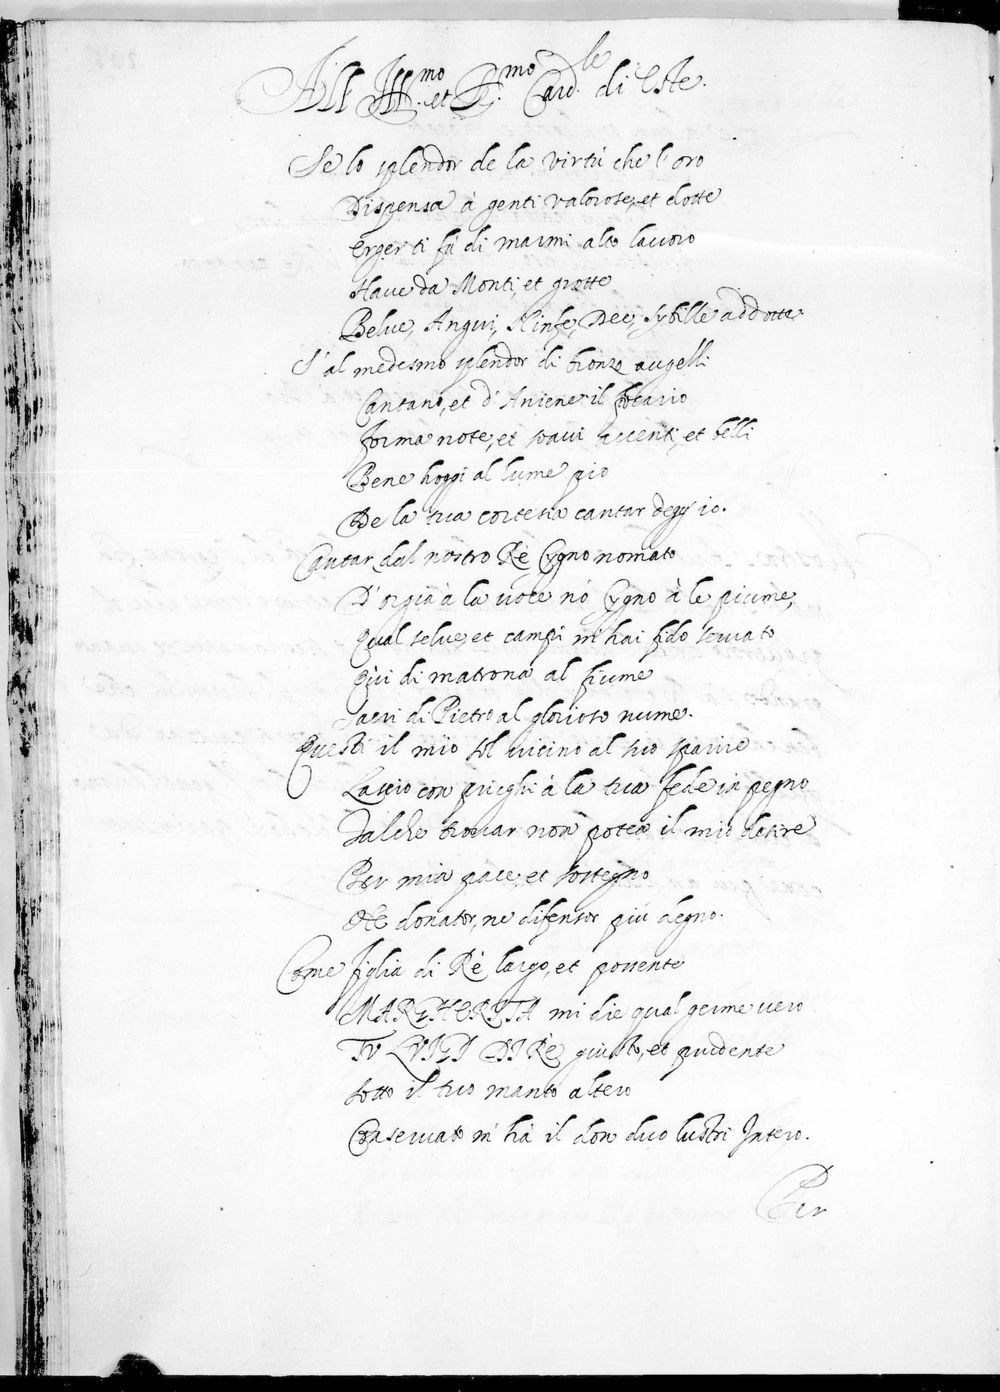 All Ill.mo et R.mo Card.le di Este.
Se lo splendor de la virtù che l'oro
Dispensa à genti valorose, et dotte
Erger ti fà di marmi alto lavoro
Have da Monti, et grotte
Belue, Angui, Ninfe, Dee, Sybille addotte.
S'al medesmo splendor di bronzo augelli
Cantano, et d'Aniene il
forma note, et soavi accenti, et belli
Bene hoggi al lume pio
De la tua cortesia cantar degg'io.
Cantar dal nostro Rè Cygno nomato
D' à la voce nõ Cygno à le piume,
Qual selve, et campi m'hai fido servato
Qui di matrona al fiume
Sacri di Pietro al glorioso nume.
Questi il mio sol vicino al suo sparire
Lascio con prieghi à la tua fede in pegno
Talche trovar non potea il mio desire
Per mia pace, et sostegno
Ne donator, ne difensor più degno.
Come figlia di Rè largo, et possente
MARGHERITA mi die qual germe vero
TV LVIGI DI Rè giusto, et prudente
sotto il tuo manto altero
Conservato m'hà il don duo lustri Intero.
Per